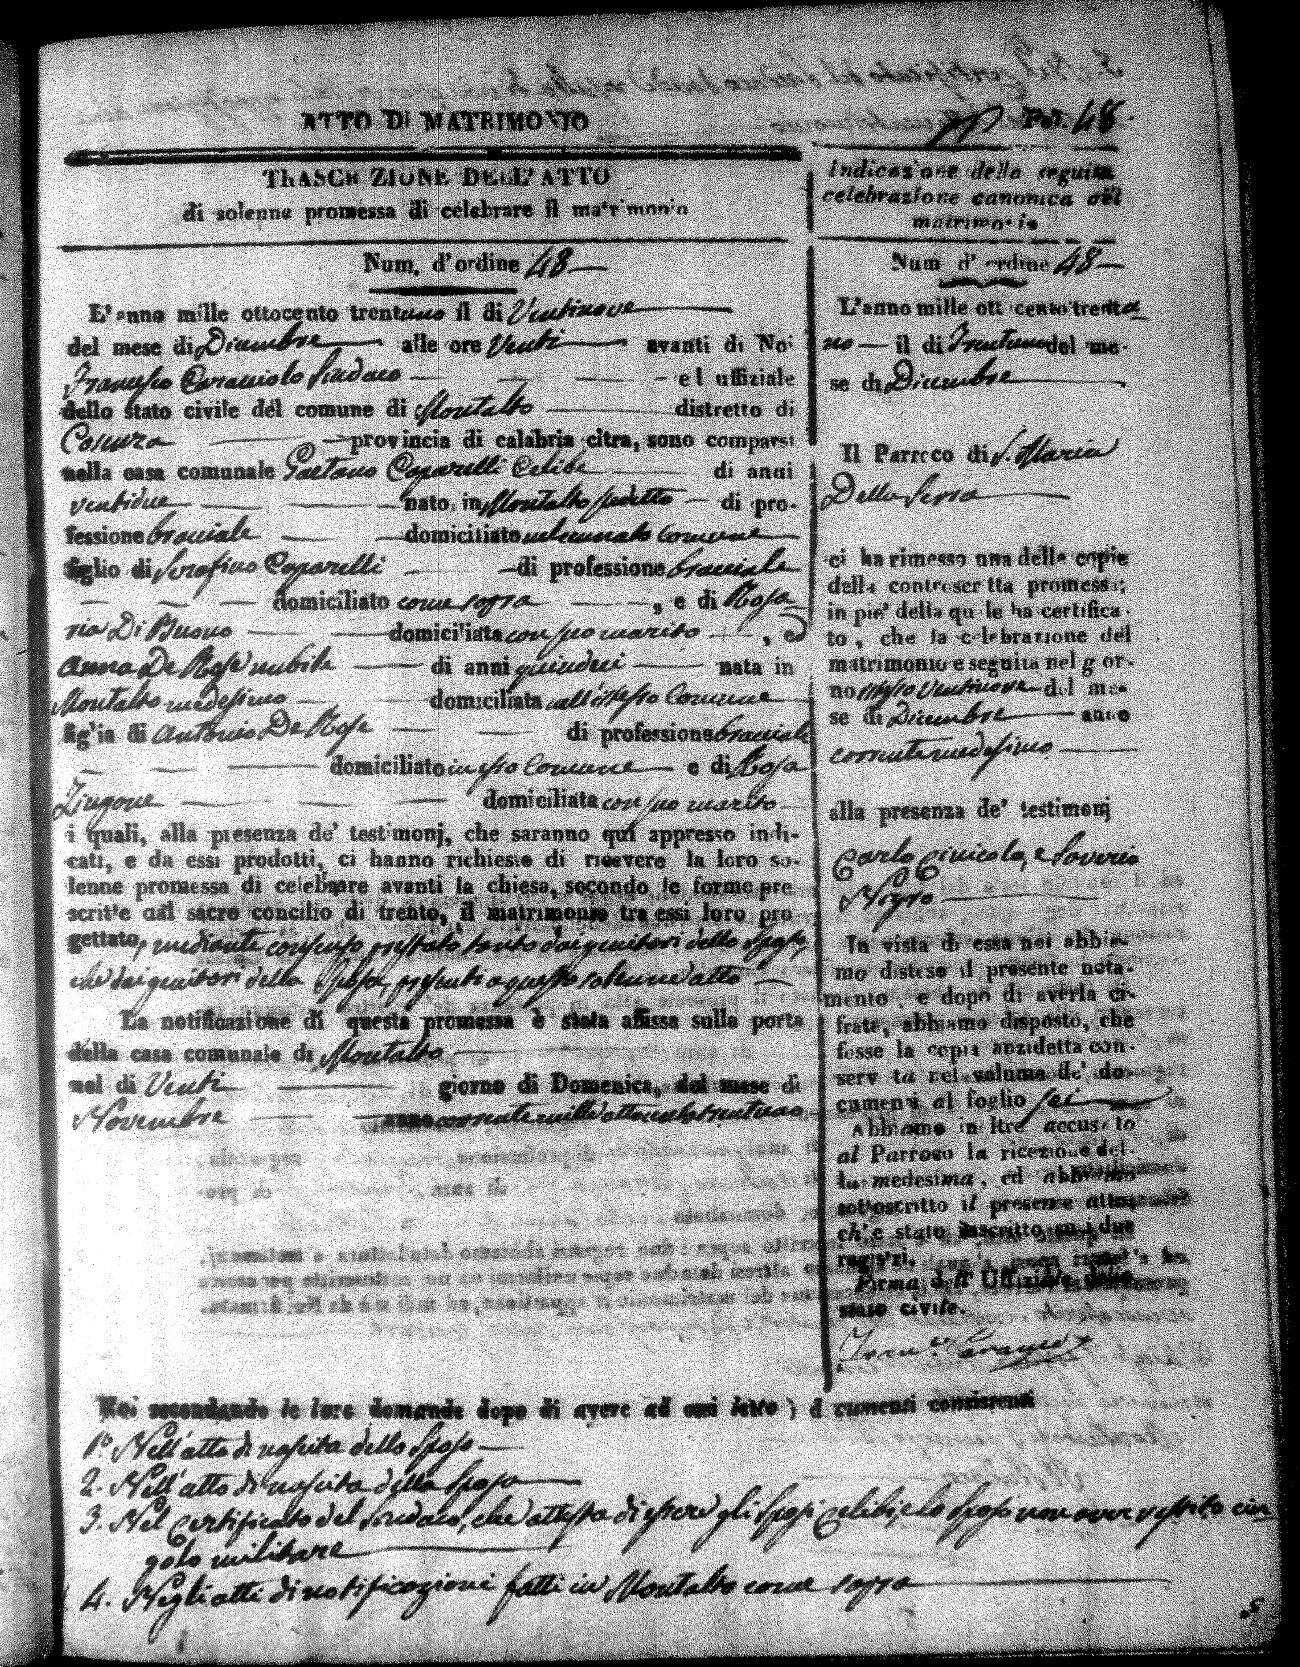 ATTO DI MATRIMONIO
Fol. 48.
TRASCRIZIONE DELL' ATTO
di solenne promessa di celebrare il matrimonio
Num. d'ordine 48
L'anno mille ottocento trentuno il dì Ventinove
del mese di Dicembre alle ore Venti avanti di Noi
Francesco Caracciolo Sindaco ed uffiziale
dello stato civile del comune di Montalto distretto di
Cosenza provincia di calabria citra, sono comparsi
nella casa comunale Gaetano Caparelli Celibe di anni
ventidue nato in Montalto sudetto di pro-
fessione bracciale domiciliato nel cennato Comune
figlio di Serafino Caparelli di professione bracciale
domiciliato come sopra, e di Rosa
ria Di Buono domiciliata con suo marito, e
Anna De Rose nubile di anni quindici nata in
Montalto medesimo domiciliata nell'istesso Comune
figlia di Antonio De Rose di professione bracciale
domiciliato in esso Comune e di Rosa
Zingone domiciliata con suo marito
i quali, alla presenza de' testimonj, che saranno qui appresso indi-
cati, e da essi prodotti, ci hanno richiesto di ricevere la loro so-
lenne promessa di celebrare avanti la chiesa, secondo le forme pre
scritte dal sacro concilio di trento, il matrimonio tra essi loro pro
gettato, mediante consenso prestato tanto dai genitori dello Sposo,
che dai genitori della Sposa, presenti a questo solenne atto
La notificazione di questa promessa è stata affissa sulla porta
della casa comunale di Montalto
nel dì Venti giorno di Domenica, del mese di
Novembre anno corrente mille ottocento trentuno
Indicazione della seguita
celebrazione canonica del
matrimonio
Num d' ordine 48
L'anno mille ottocento trentu
no il dì Trentuno del me-
se di Dicembre
Il Parroco di S. Maria
Della Serra
ci ha rimesso una delle copie
della controscritta promessa;
in piè della quale ha certifica-
to, che la celebrazione del
matrimonio e seguita nel gior-
no istesso Ventinove del me-
se di Dicembre anno
corrente medesimo
alla presenza de' testimonj
Carlo e Saverio
Nigro
In vista di essa noi abbia-
mo disteso il presente nota-
mento, e dopo di averla ci-
frata, abbiamo disposto, che
fosse la copia anzidetta con-
servata nel volume de' do-
cumenti al foglio sei
Abbiamo inoltre accusato
al Parroco la ricezione del-
la medesima, ed abbiamo
sottoscritto il presente atto
ch'è stato inscritto su i due
registri.
Firma dell' Uffiziale dello
stato civile.
Noi secondando le loro domande dopo di avere ad essi letto i documenti consistenti
1.º Nell'atto di nascita dello Sposo
2. Nell'atto di nascita della Sposa
3. Nel Certificato del Sindaco, che attesta di essere gli Sposi celibi, e lo Sposo non aver vestito cin
golo militare
4. Negli atti di notificazioni fatti in Montalto come sopra